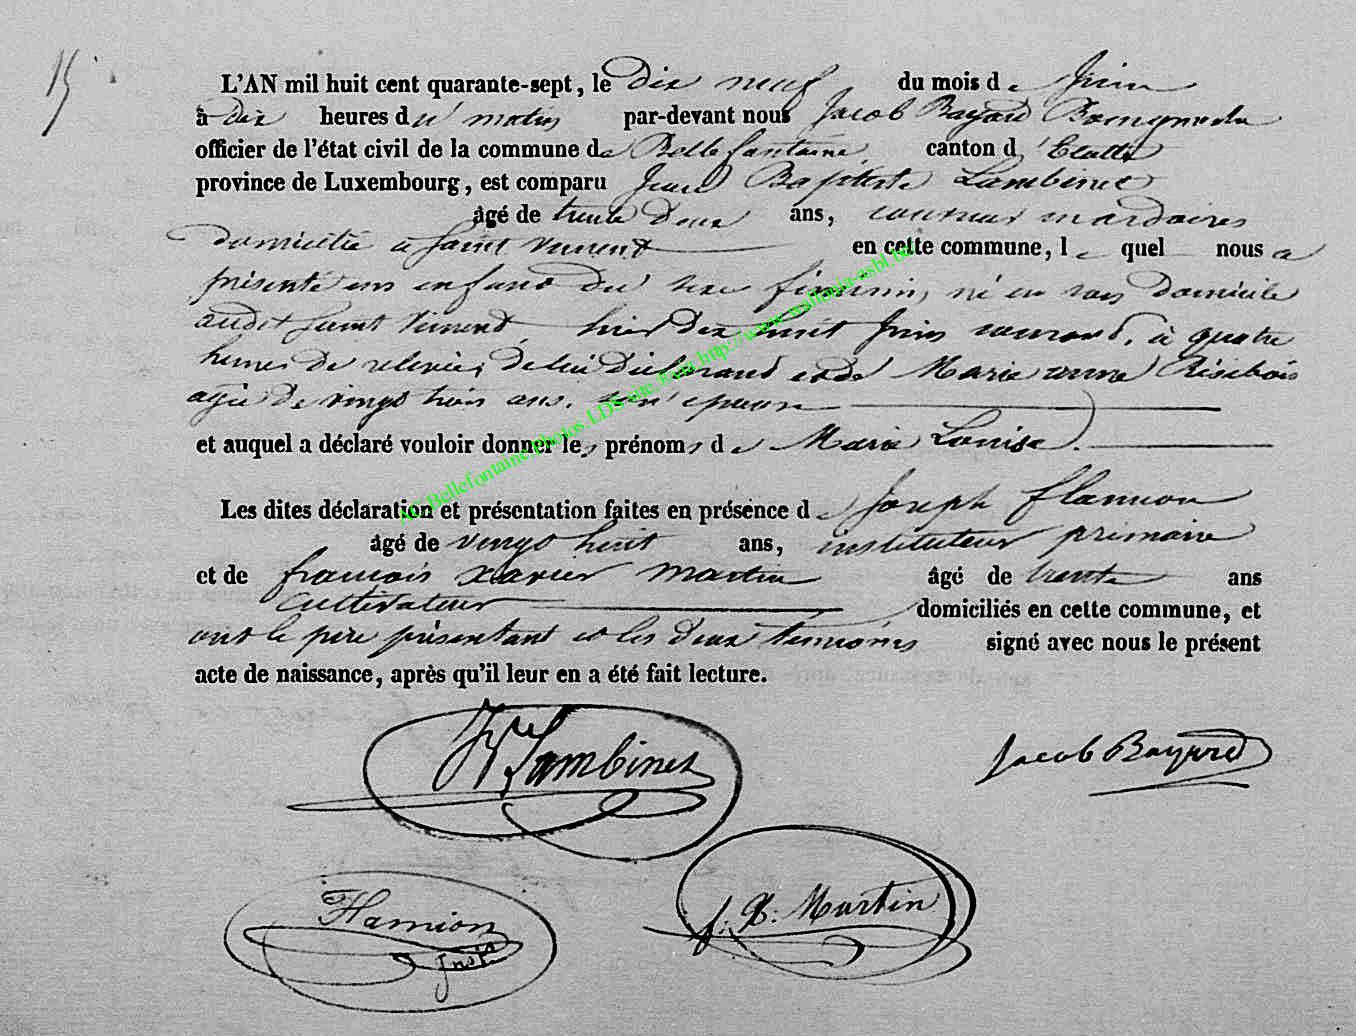 15
L'AN mil huit cent quarante-sept, le Dix neuf du mois de Juin
à Dix heures du matin par-devant nous Jacob Bayard Bourgmestre
officier de l'état civil de la commune de Bellefontaine canton d'Etalle
province de Luxembourg, est comparu Jean Baptiste Lambinet
âgé de trente Deux ans,
domicilié à Saint Vincent en cette commune, lequel nous a
présenté un enfant du sexe féminin, né en son Domicile
audit Saint Vincent, hier Dix huit Juin courant, à quatre
heures de relevée, de lui Déclarant et de Marie anne
agée de vingt trois ans, son épouse
et auquel a déclaré vouloir donner les prénoms de Marie Louise.
Les dites déclaration et présentation faites en présence de Joseph
âgé de vingt huit ans, instituteur primaire
et de françois xavier Martin âgé de trente ans
cultivateur domiciliés en cette commune, et
ont le père présentant et les deux témoins signé avec nous le présent
acte de naissance, après qu'il leur en a été fait lecture.
Lambinet
Jacob Bayard
f. X. Martin
AC Bellefontaine. Photos LDS site Rwa http://www.wallonia-asbl.be